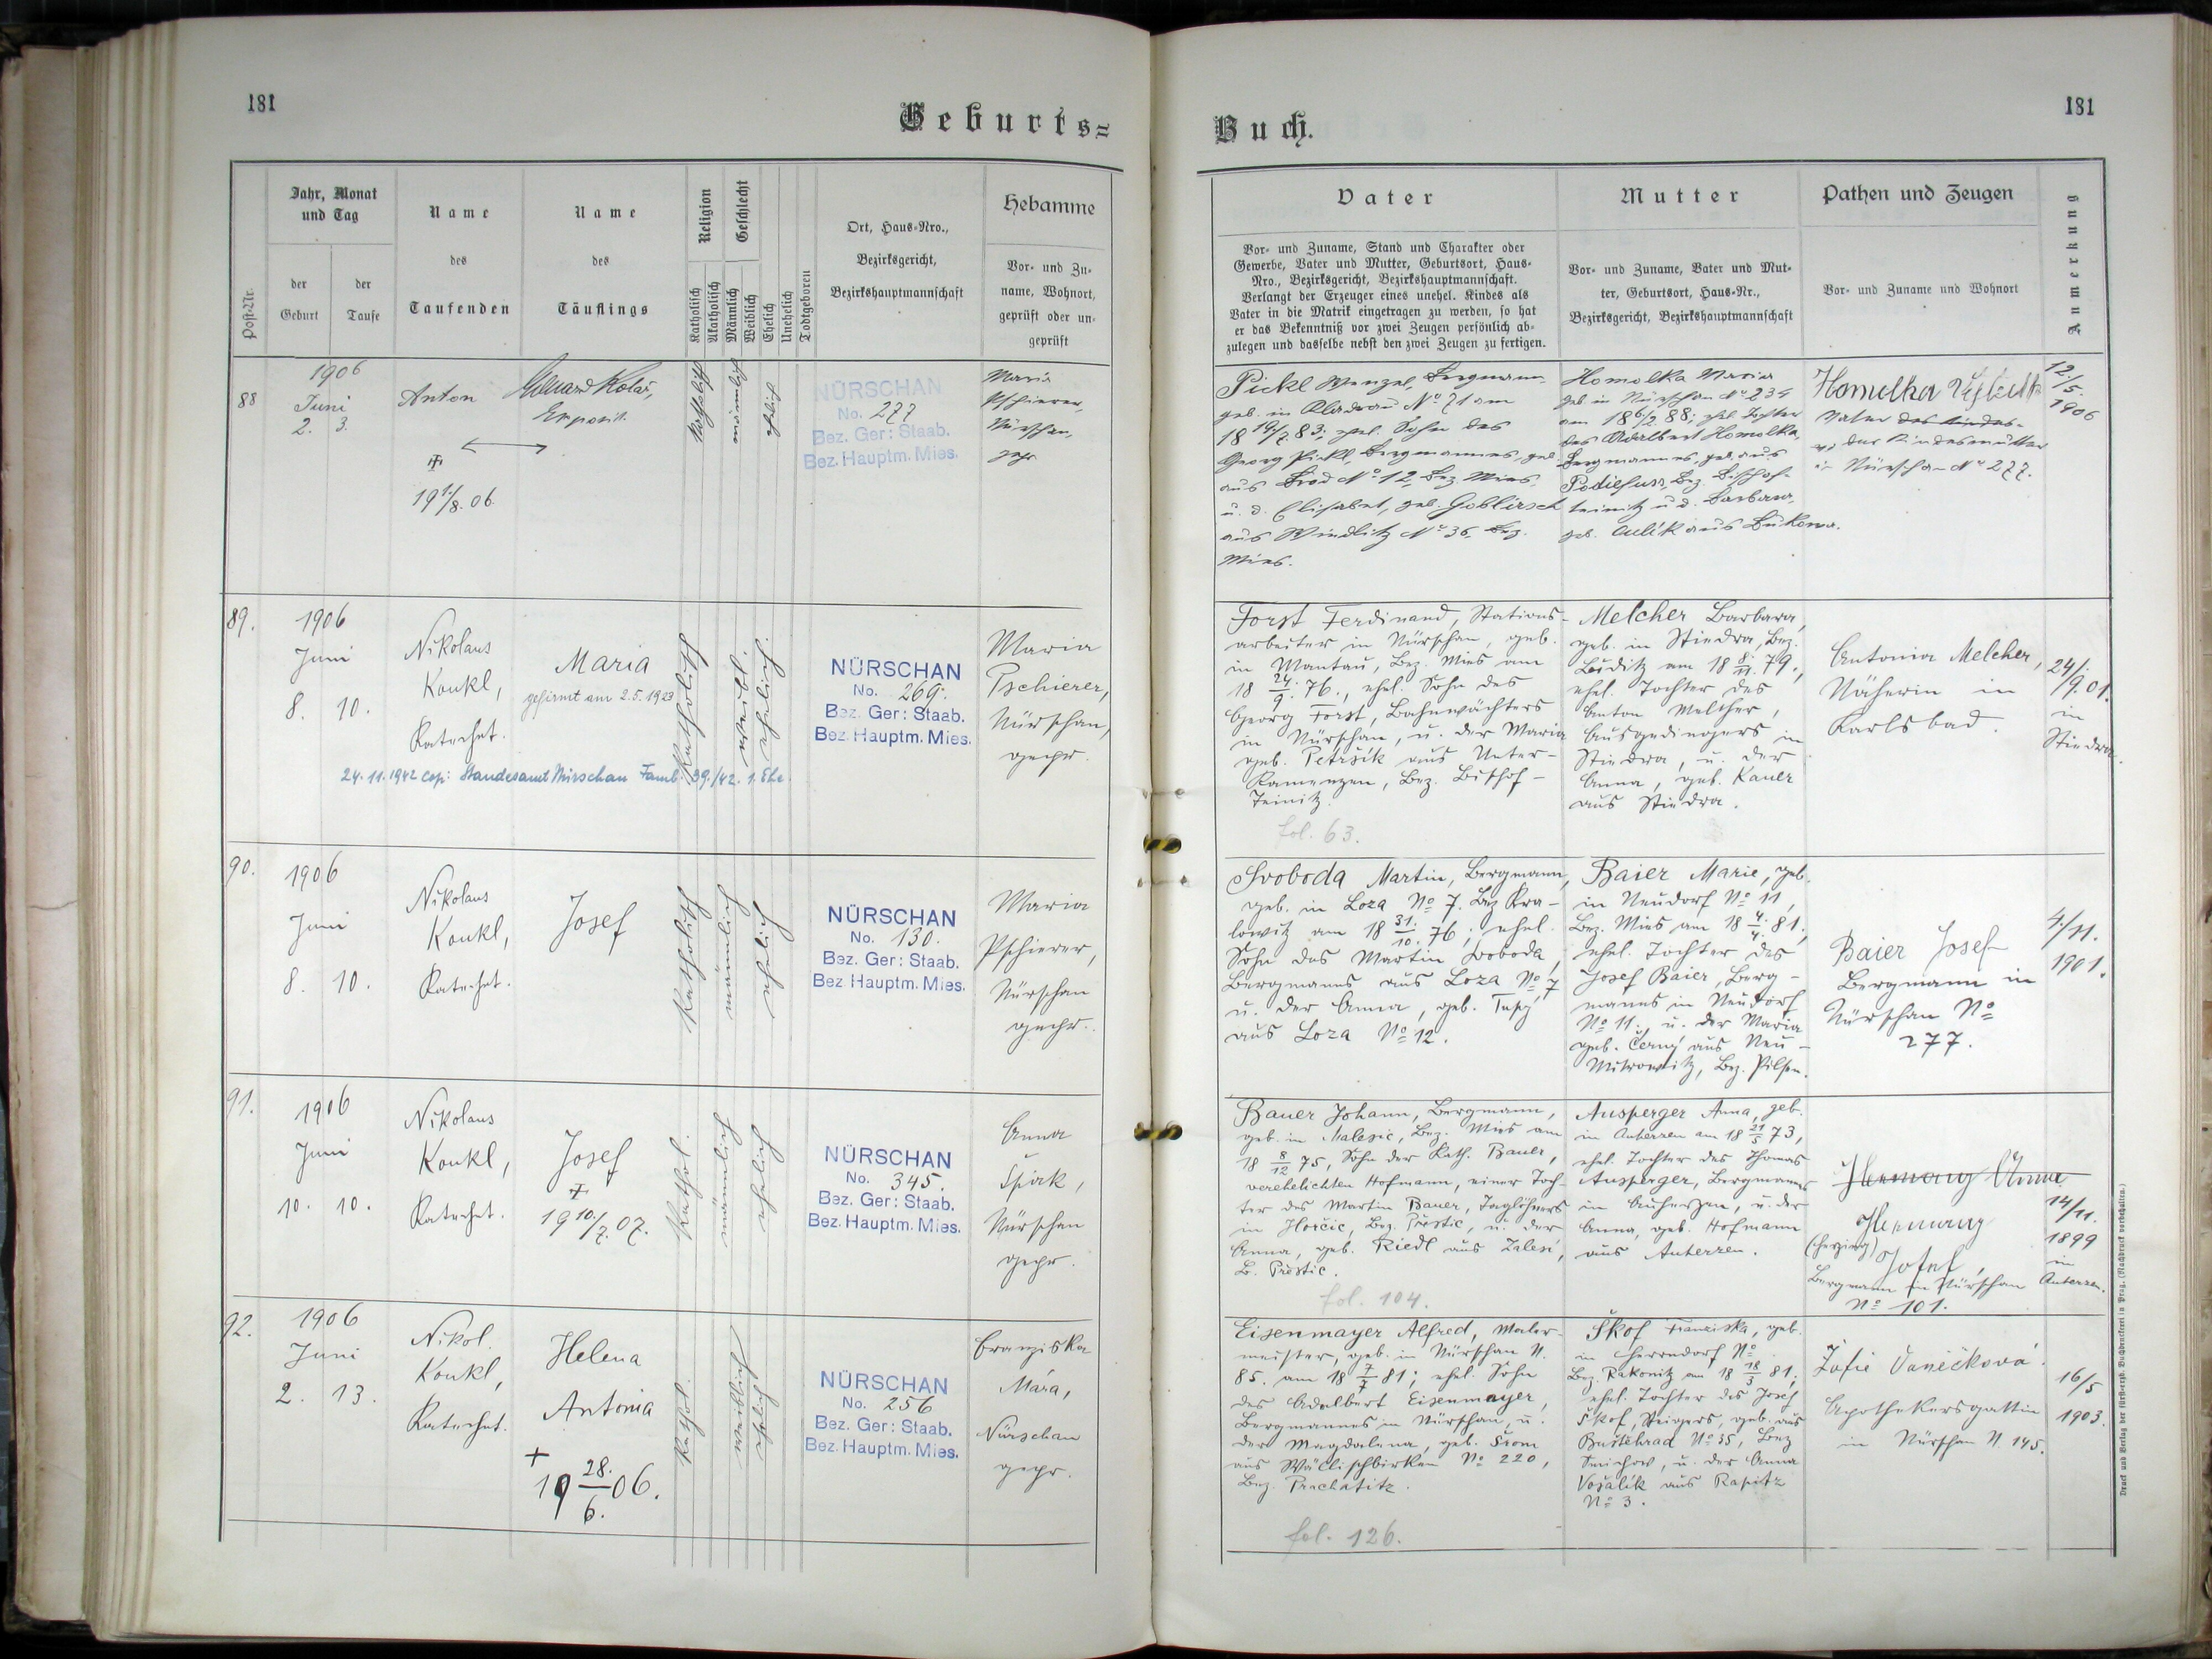 181
Geburts=
Post-Nr.
Jahr, Monat
und Tag
der
Geburt
der
Taufe
Name
des
Taufenden
Name
des
Täuflings
Religion
Katholisch
Akatholisch
Geschlecht
Männlich
Weiblich
Ehelich
Unehelich
Todtgeboren
Ort, Haus-Nro.,
Bezirksgericht,
Bezirkshauptmannschaft
Hebamme
Vor- und Zu-
name, Wohnort,
geprüft oder un-
geprüft
88
1906
Juni
2. 3.
Anton
Eduard Kolař,
Exposit.
19 1/8. 06.
katholisch
männlich
ehelich
NÜRSCHAN
No. 277
Bez. Ger: Staab.
Bez. Hauptm. Mies.
Maria
Pschierer,
Nürschan,
gepr
89.
1906
Juni
8. 10.
Nikolaus
Konkl,
Katechet.
Maria
gefirmt am 2.5.1923
24.11.1942 cop: Standesamt Nürschan Famb. 39/42. 1. Ehe.
Katholisch
weibl.
ehelich.
NÜRSCHAN
No. 269.
Bez. Ger: Staab.
Bez. Hauptm. Mies.
Maria
Pschierer,
Nürschan,
gepr.
90.
1906
Juni
8. 10.
Nikolaus
Konkl,
Katechet.
Josef
Katholisch
männlich
ehelich
NÜRSCHAN
No. 130.
Bez. Ger: Staab.
Bez. Hauptm. Mies.
Maria
Pschierer,
Nürschan
gepr.
91.
1906
Juni
10. 10.
Nikolaus
Konkl,
Katechet.
Josef
+
19 10./7. 07.
Kathol.
männlich
ehelich
NÜRSCHAN
No. 345.
Bez. Ger: Staab.
Bez. Hauptm. Mies.
Anna
Špirk,
Nürschan
gepr.
92.
1906
Juni
2. 13.
Nikol.
Konkl,
Katechet.
Helena
Antonia
+
19 28./6. 06.
Kathol.
weiblich
ehelich
NÜRSCHAN
No. 256
Bez. Ger: Staab.
Bez. Hauptm. Mies.
Franziska
Mára,
Nürschan
gepr.
Buch.
181
Vater
Vor- und Zuname, Stand und Charakter oder
Gewerbe, Vater und Mutter, Geburtsort, Haus-
Nro., Bezirksgericht, Bezirkshauptmannschaft.
Verlangt der Erzeuger eines unehel. Kindes als
Vater in die Matrik eingetragen zu werden, so hat
er das Bekenntniß vor zwei Zeugen persönlich ab-
zulegen und dasselbe nebst den zwei Zeugen zu fertigen.
Mutter
Vor- und Zuname, Vater und Mut-
ter, Geburtsort, Haus-Nr.,
Bezirksgericht, Bezirkshauptmannschaft
Pathen und Zeugen
Vor- und Zuname und Wohnort
Anmerkung
Pickl Wenzel, Bergmann,
geb. in Kladrau No. 71 am
18 19/7. 83; ehel. Sohn des
Georg Pickl, Bergmannes, geb.
aus Brod No. 12, Bez. Mies
u. d. Elisabet, geb. Goblirsch
aus Wiendlitz No. 36, Bez.
Mies.
Homolka Maria
geb. in Nürschan No. 234
am 18 6/2 88; ehel. Tochter
des Adalbert Homolka,
Bergmannes, geb. aus
Bez. Bischof-
teinitz u. d. Barbara,
geb. Culík aus Bukowa.
Homolka
Vater des Kindes-
der Kindesmutter
in Nürschan No. 277.
12./5.
1906
Forst Ferdinand, Stations-
arbeiter in Nürschan, geb.
in Mantau, Bez. Mies am
18 24./9. 76., ehel. Sohn des
Georg Forst, Bahnwächters
in Nürschan, u. der Maria
geb. Petržik aus Unter-
Kamenzen, Bez. Bischof-
Teinitz.
fol. 63.
Melcher Barbara,
geb. in Stiedra, Bez.
Luditz am 18 8./11. 79.,
ehel. Tochter des
Anton Melcher,
Ausgedingers in
Stiedra, u. der
Anna, geb. Kauer
aus Stiedra.
Antonia Melcher,
Näherin in
Karlsbad.
24/9. 01.
in
Stiedra.
Svoboda Martin, Bergmann,
geb. in Loza No. 7. Bez Kra-
lowitz am 18 31./10. 76; ehel.
Sohn des Martin Svoboda,
Bergmanns aus Loza No. 7
u. der Anna, geb.
aus Loza No. 12.
Baier Marie, geb.
in Neudorf No. 11,
Bez. Mies am 18 4./4. 81.,
ehel. Tochter des
Josef Baier, Berg-
manns in Neudorf
No. 11., u. der Maria
geb. Černý aus Neu-
Mitrowitz, Bez. Pilsen.
Baier Josef
Bergmann in
Nürschan No.
277.
4./11.
1901.
Bauer Johann, Bergmann,
geb. in Malesic, Bez. Mies am
18 8/12 75, Sohn der Kath. Bauer,
verehelichten Hofmann, einer Toch-
ter des Martin Bauer, Taglöhners
in Horčic, Bez. Přestic, u. der
Anna, geb. Riedl aus Zalesí,
B. Přestic.
fol. 104.
Ausperger Anna, geb.
in Auherzen am 18 21/5 73,
ehel. Tochter des Thomas
Ausperger, Bergmanns
in Auherzen, u. der
Anna, geb. Hofmann
aus Auherzen.
Anna
(Herzing)
Josef,
Bergmann in Nürschan
No. 101.
14/11.
1899
in
Auherzen.
Eisenmayer Alfred, Maler-
meister, geb. in Nürschan N.
85. am 18 7/7 81; ehel. Sohn
des Adalbert Eisenmayer,
Bergmannes in Nürschan, u.
der Magdalena, geb. Šrom
aus Wällischbirken No. 220,
Bez. Prachatitz.
fol. 126.
Škof Franziska, geb.
in Herrndorf No.
Bez. Rakonitz am 18 18/3 81;
ehel. Tochter des Josef
Škof, Steigers, geb. aus
Buštehrad No. 35, Bez
Smichow, u. der Anna
Vošalík aus Rapitz
No. 3.
Žofie Vaněčková.
Apothekersgattin
in Nürschan N. 145.
16/5
1903.
Druck und Verlag der fürst-erzb. Buchdruckerei in Prag. (Nachdruck vorbehalten.)